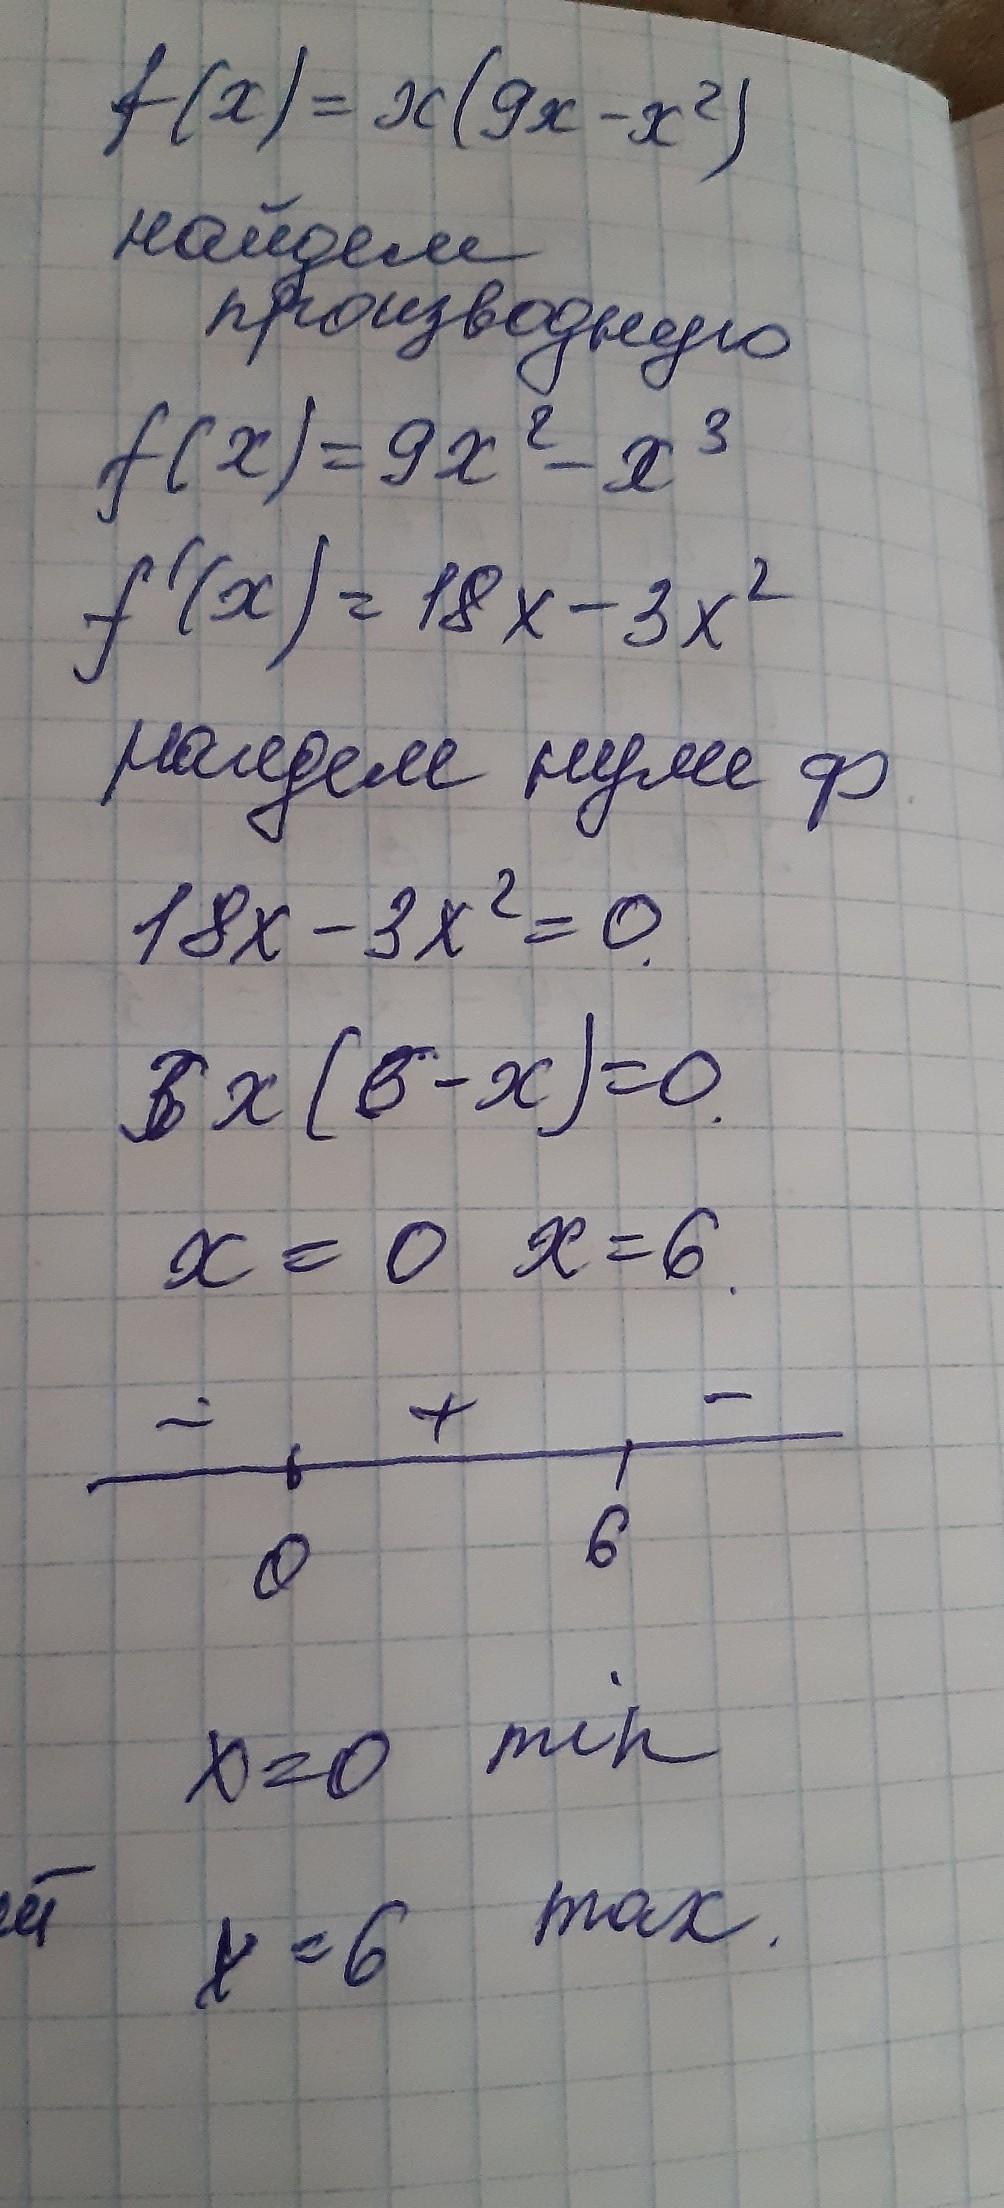 f(x) = x(9x - x²)
найдем
производную
f(x) = 9x² - x³
f'(x) = 18x - 3x²
найдем нули ф
18x - 3x² = 0.
x( - x) = 0.
x = 0 x = 6.
- + -
0 6
x = 0 min
x = 6 max.